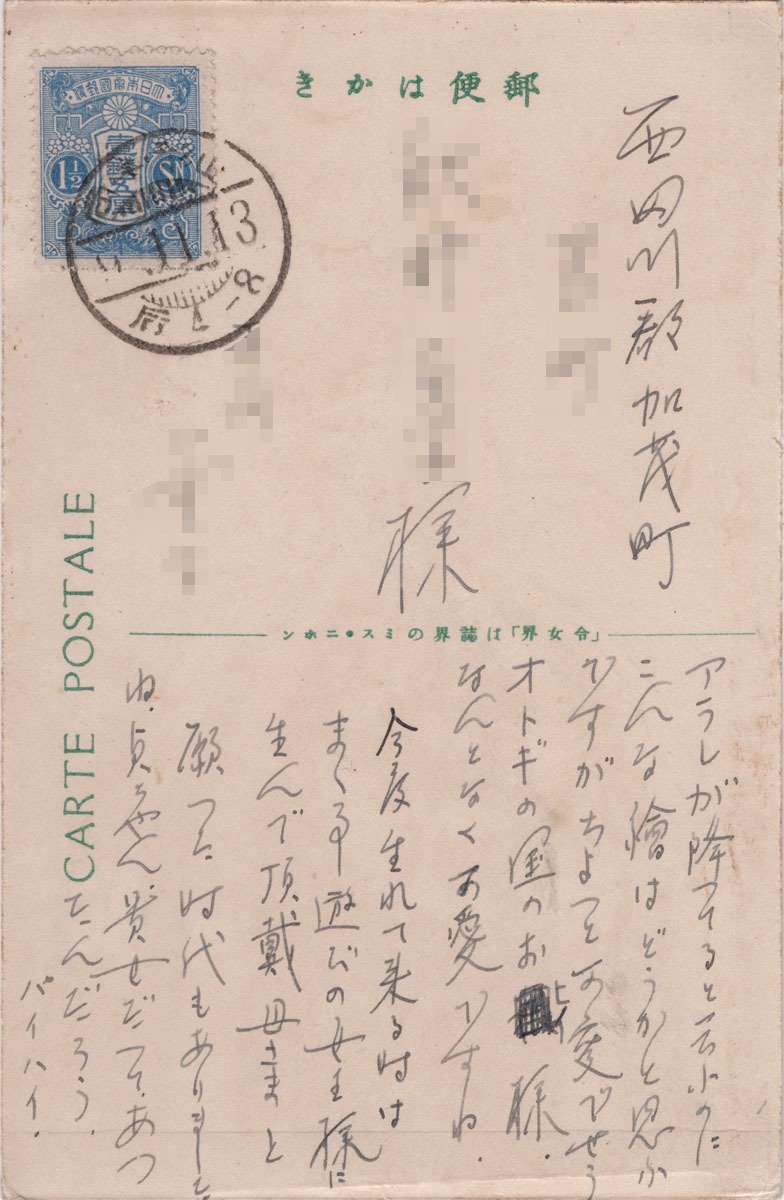 郵便はかき
大日本帝國郵便
壹錢五厘
1½ SN
11.13
后 4-8
西田川郡加茂町
様
「令女界」は誌界のミス・ニホン
CARTE POSTALE
アラレが降つてると云ふのに
こんな繪はどうかと思ふ
ですがちよつと可愛でせう
オトギの国のお 様.
なんとなく可愛ですね.
今度生れて来る時は
まゝ事遊びの女王様に
生んで頂戴母さまと
願つた時代もありました
ね.貞ちやん、貴女だつて.あつ
たんだらう.
バイバイ.